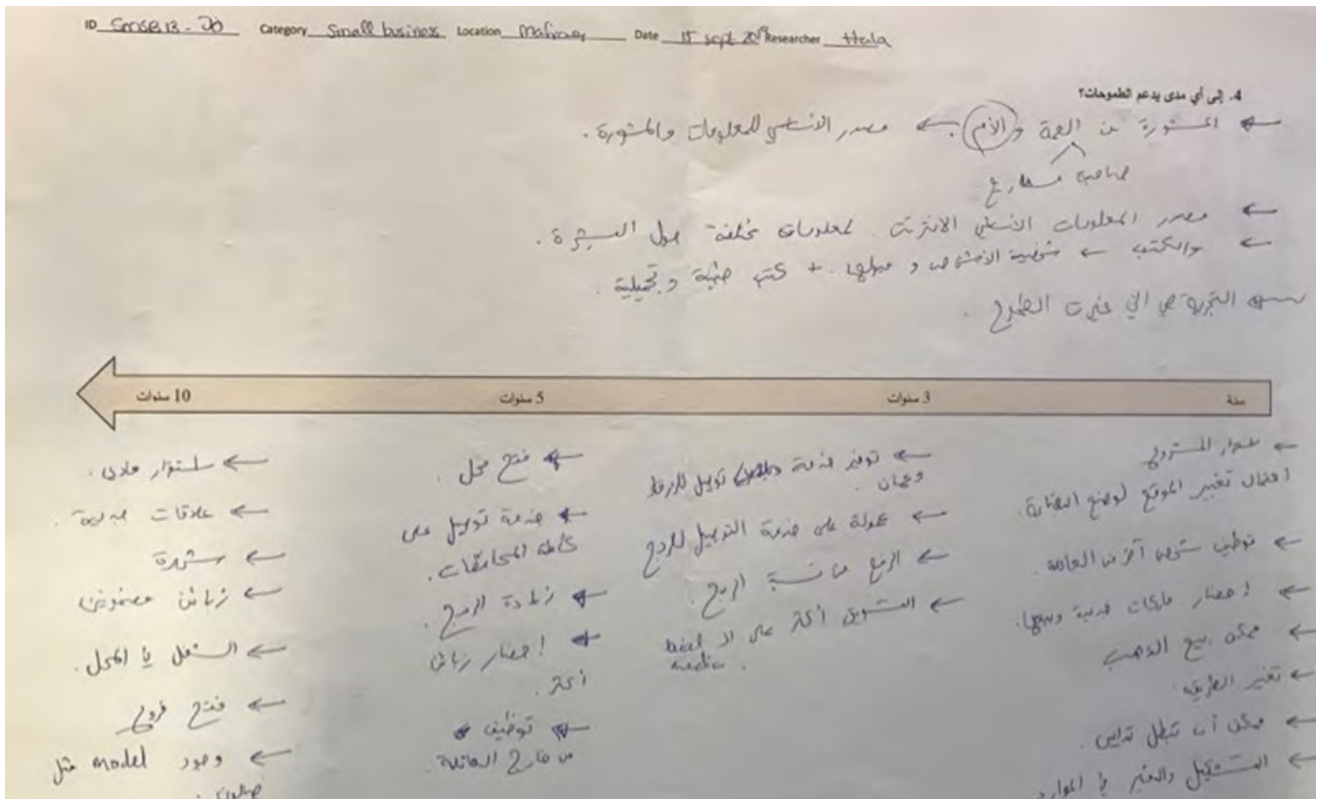 ID Category Small business Location Date 15 sept Researcher Hala
4. إلى أي مدى يدعم الطموحات؟
← المشورة من العمة والأم ← مصدر الأساسي للمعلومات والمشورة.
صاحبة مشاريع
← مصدر المعلومات الأساسي الانترنت. لمعلومات مختلفة حول البشرة.
← والكتب ← شخصية الأشخاص و + كتب وتجميلية.
← التجربة هي الي غيرت الطموح.
سنة
3 سنوات
5 سنوات
10 سنوات
احتمال تغيير الموقع لوضع البضاعة.
← توظيف شخص آخر من العائلة.
← إحضار ماركات وبيعها.
← ممكن بيع الذهب
← تغيير الطريقة
← ممكن أن تبطل
← توفير خدمة توصيل للزرقا
وعمان.
← عمولة على خدمة التوصيل للربح
← الرفع من نسبة الربح.
← التسويق أكثر على
← فتح محل.
← خدمة توصيل على
كافة المحافظات.
← زيادة الربح.
← إحضار زبائن
أكثر.
← توظيف
من خارج العائلة.
← استقرار مادي.
← علاقات جديدة.
← شهرة
← زبائن مضمونين
← الشغل بالمحل.
← فتح فروع
← وجود model مثل
صالون.